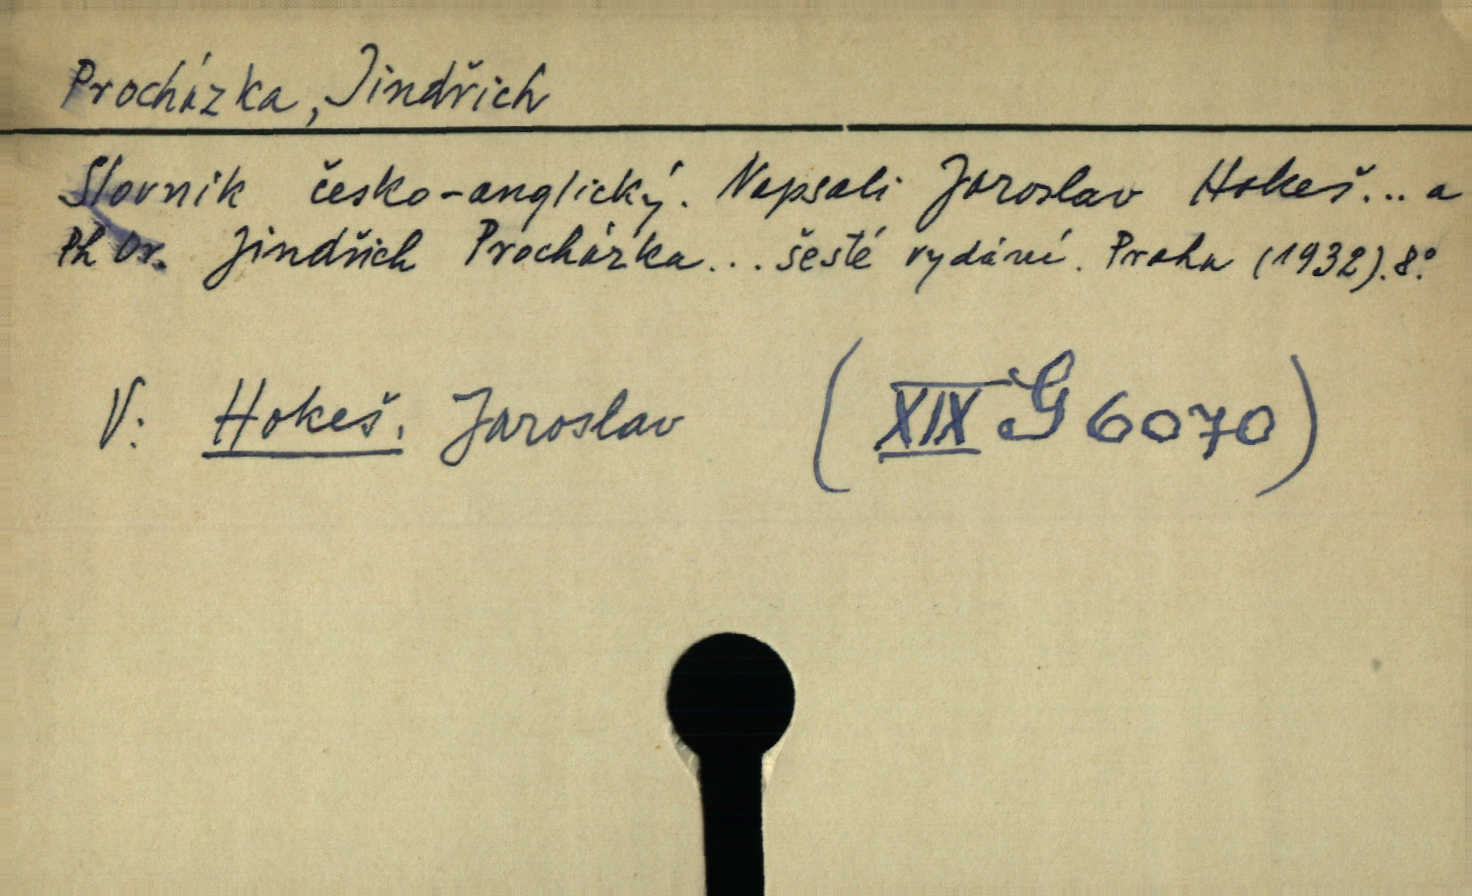 Procházka, Jindřich
Slovnik česko-anglický. Napsali Jaroslav Hokeš... a
Ph Dr. Jindřich Procházka... šesté vydání. Praha (1932). 8°.
V: Hokeš, Jaroslav (XIX G 6070)